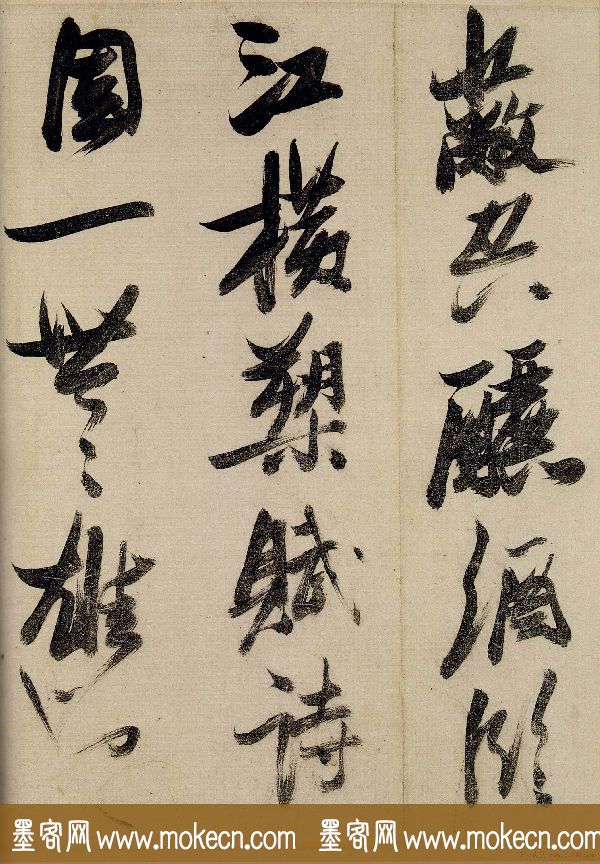 蔽空釃酒臨
江橫槊賦詩
固一世之雄也
墨客网www.mokecn.com 墨客网www.mokecn.com